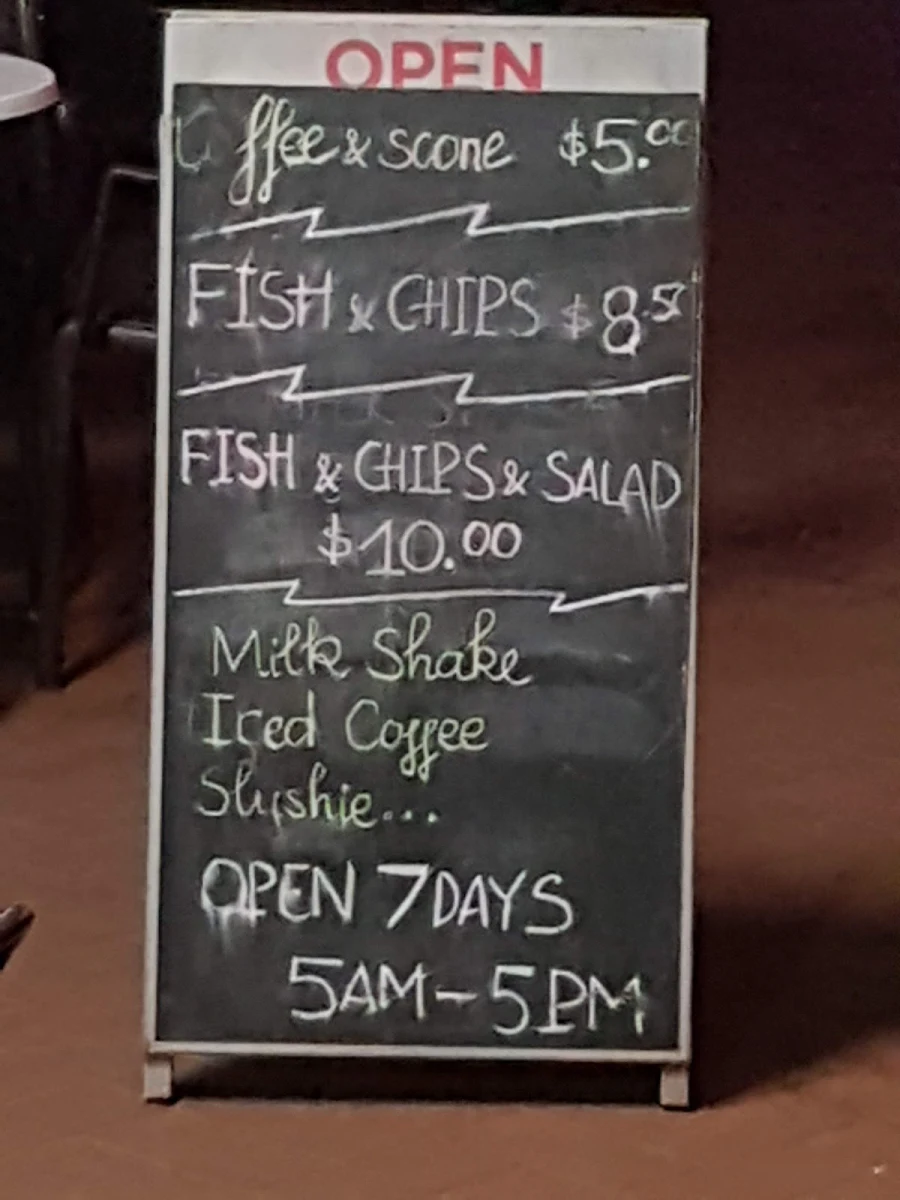 OPEN
Coffee & scone $5.00
FISH & CHIPS $8.50
FISH & CHIPS & SALAD
$10.00
Milk Shake
Iced Coffee
Slushie...
OPEN 7 DAYS
5AM - 5PM